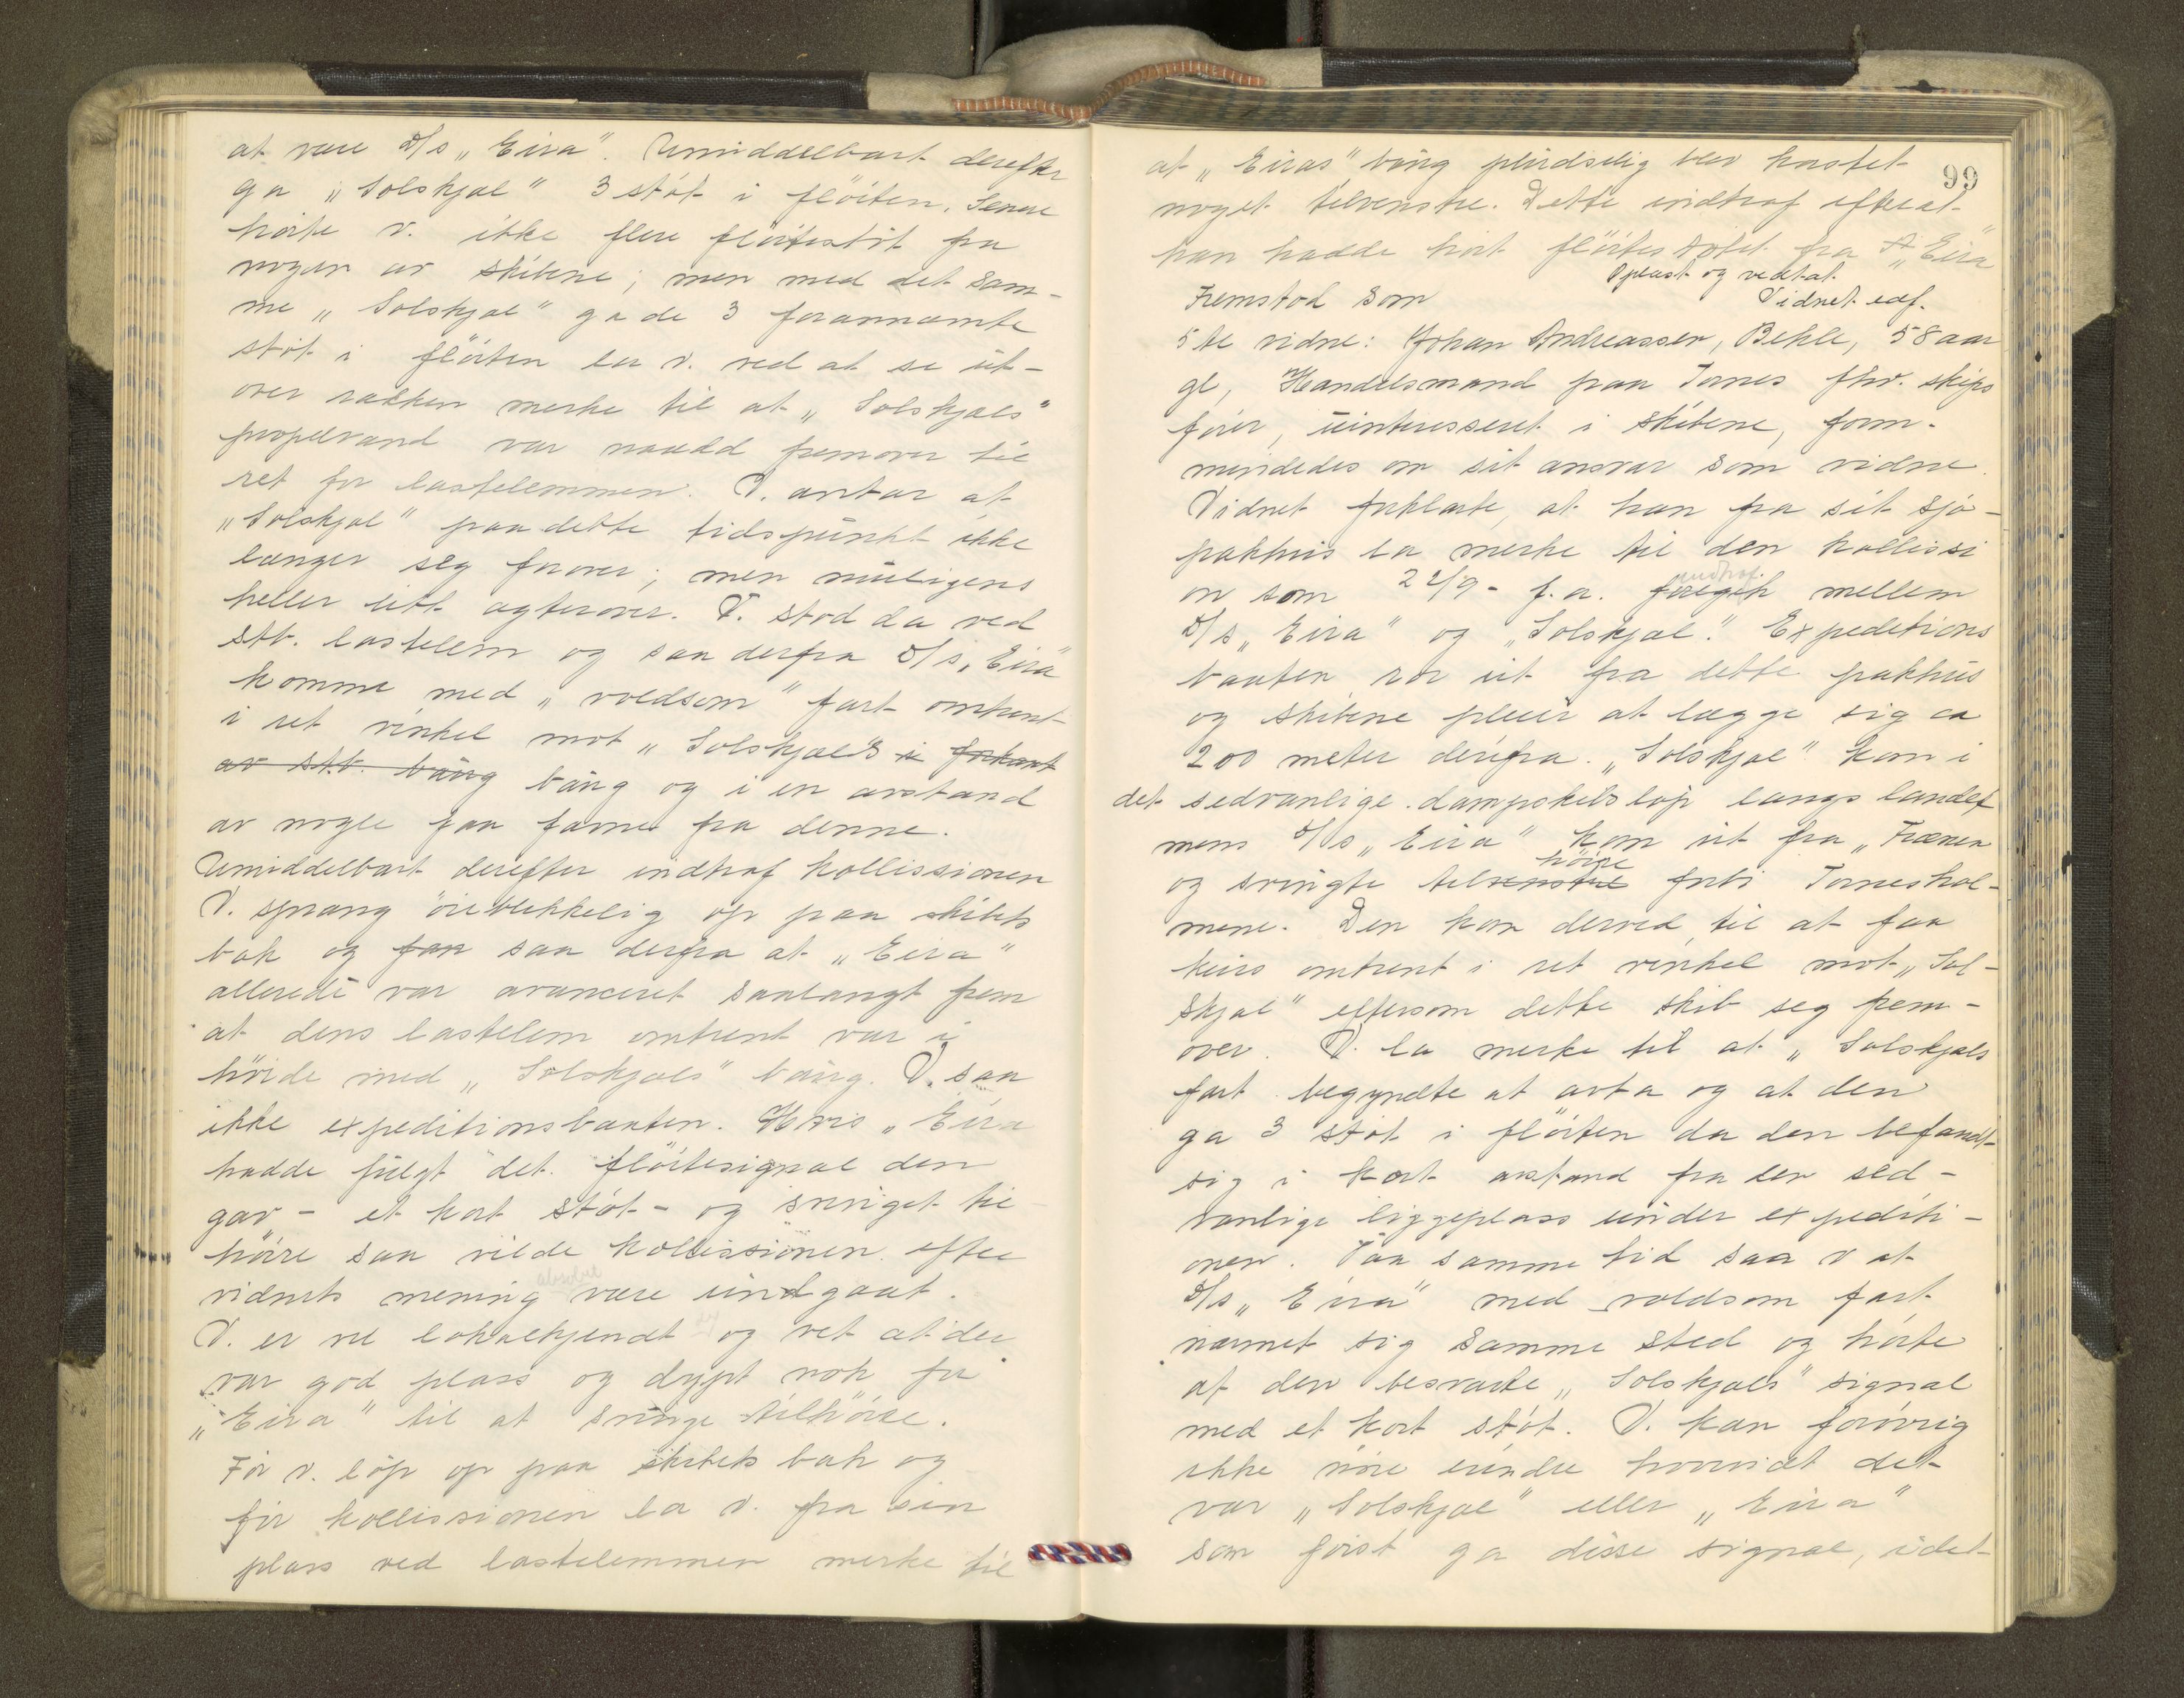 at være D/s „Eira". Umiddelbart derefter
ga „Solskjæl" 3 støt i fløiten. Senere
hørte v. ikke flere fløitestøt fra
nogen av skibene; men med det sam-
me „Solskjæl" ga de 3 forannævnte
støt i fløiten la v. ved at se ut-
over rækken merke til at „Solskjæls"
propelvand var naadd fremover til
ret for lastelemmen. V. antar at
„Solskjæl" paa dette tidspunkt ikke
længer seg forover; men muligens
heller litt agterover. V. stod da ved
stb. lastelem og saa derfra D/s „Eira"
komme med „voldsom" fart omtrent
i ret vinkel mot „Solskjæl's i forkant
av stb. baug baug og i en avstand
av nogle faa favner fra denne.
Umiddelbart derefter indtraf kollissionen
V. sprang øieblikkelig op paa skibets
bak og fan saa derfra at „Eira"
allerede var avanceret saalangt frem
at dens lastelem omtrent var i
høide med „Solskjæls" baug. V. saa
ikke expeditionsbaaten. Hvis „Eira
hadde fulgt det fløitesignal den
gav - et kort støt - og svinget til
høire saa vilde kollissionen efter
vidnets mening absolut være undgaat.
V. er vel lokalkjendt og vet at der
var god plass og dypt nok for
„Eira" til at svinge tilhøire.
Før v. løp op paa skibets bak og
før kollissionen la v. fra sin
plass ved lastelemmen merke til
99
at „Eiras" baug pludselig blev kastet
noget tilvenstre. Dette indtraf efterat
han hadde hørt fløitestøtet fra „Eira"
Oplæst og vedtat.
Fremstod som
Vidnet edf.
5te vidne: Johan Andreassen, Bekle, 58 aar
gl, Handelsmand paa Tornes fhv. skips
fører, uinteresseret i skibene, form-
mindedes om sit ansvar som vidne.
Vidnet forklarte, at han fra sit sjø-
pakhus la merke til den kollissi
on som 22/9- f.a. foregik indtraf mellem
D/s „Eira" og „Solskjæl". Expeditions
baaten ror ut fra dette pakhus
og skibene pleier at lægge sig ca
200 meter derifra. „Solskjæl" kom i
det sedvanlige dampskibsløp langs landet
mens D/s „Eira" kom ut fra „Frænen
og svingte tilvenstre høire forbi Torneshol-
mene. Den kom derved til at faa
kurs omtrent i ret vinkel mot „Sol-
skjæl" eftersom dette skib seg frem-
over. V. la merke til at „Solskjæls
fart begyndte at avta og at den
ga 3 støt i fløiten da den befandt
sig i kort avstand fra den sed-
vanlige liggeplass under expediti-
onen. Paa samme tid saa v at
D/s „Eira" med voldsom fart
nærmet sig samme sted og hørte
at den besvarte „Solskjæls" signal
med et kort støt. V. kan forøvrig
ikke nøie erindre hvorvidt det
var „Solskjæl" eller „Eira"
som først ga disse signal, idet